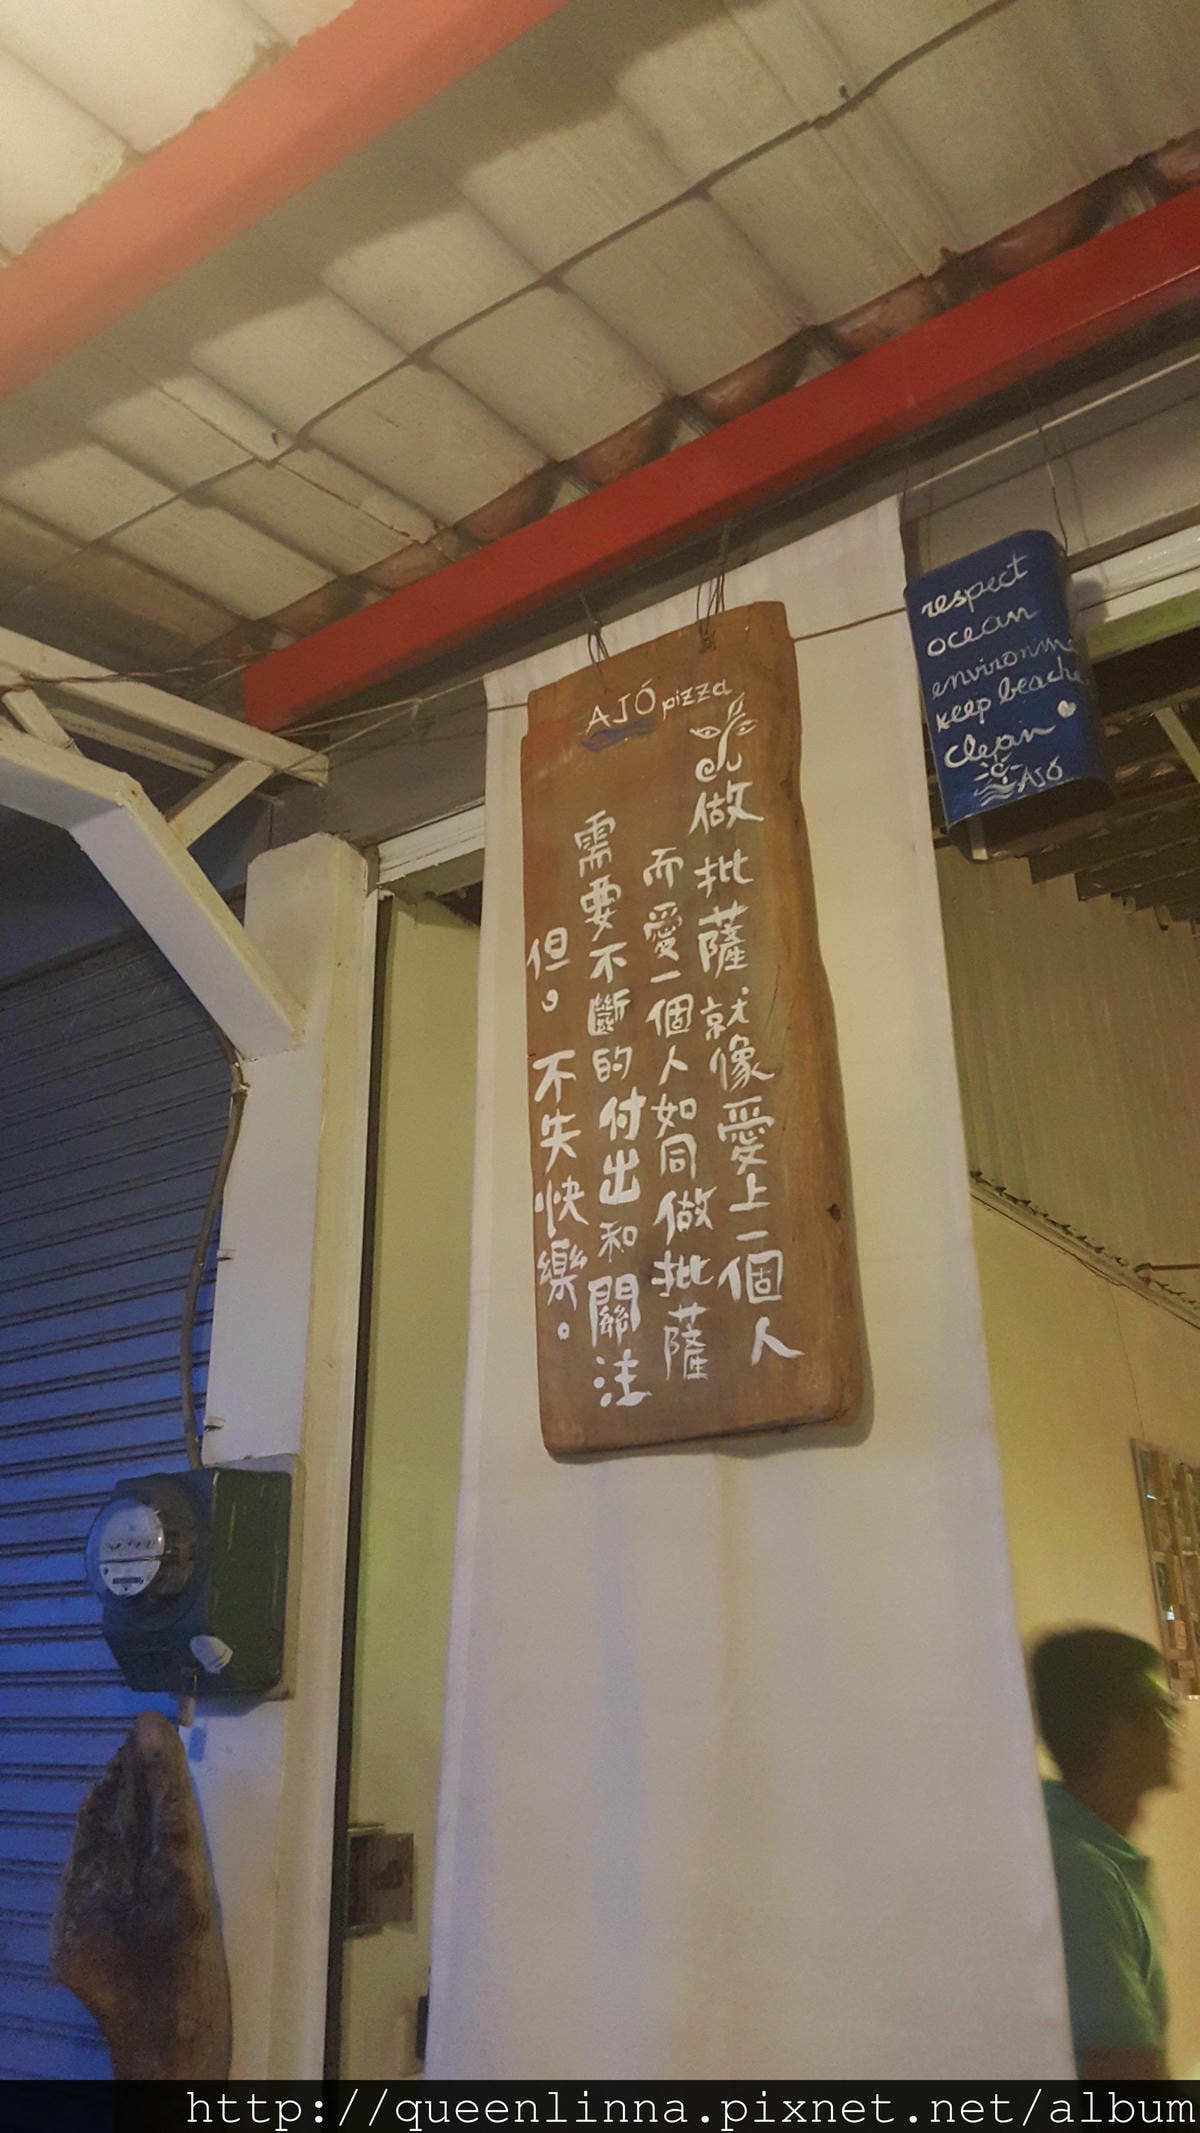 AJÓ pizza
做批薩就像愛上一個人
而愛一個人如同做批薩
需要不斷的付出和關注
但。不失快樂。
respect
ocean
keep
clean
AJÓ
http://queenlinna.pixnet.net/album